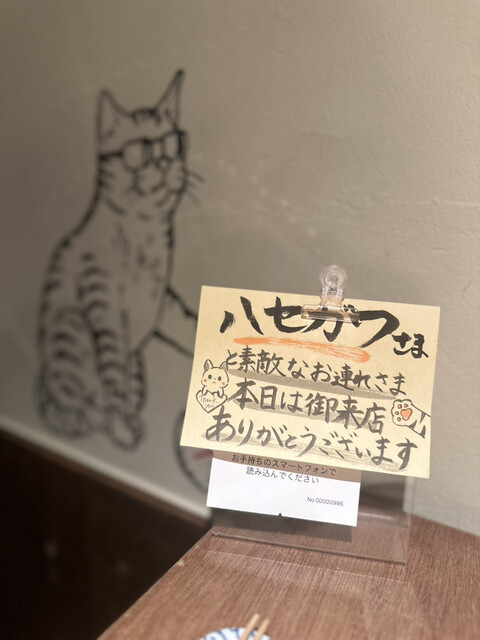 ハセガワさま
と素敵なお連れさま
本日は御来店
ありがとうございます
お手持ちのスマートフォンで
読み込んでください
No.00000996